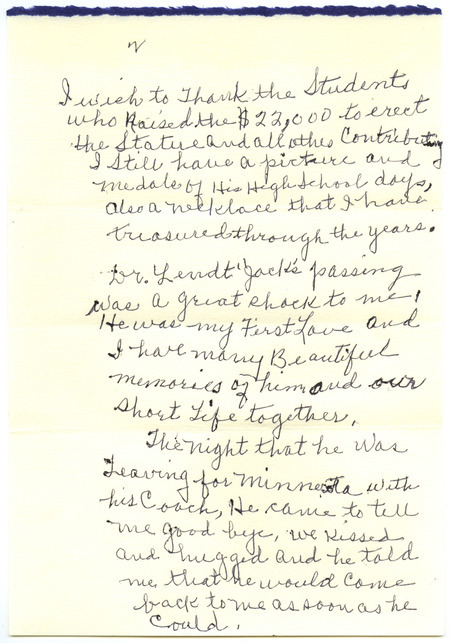 2
I wish to Thank the Students
who Raised the $22,000 to erect
the Statue and all other Contributing
I Still have a picture and
medals of His High School days,
also a necklace that I have
treasured through the years.
Dr. Lendt "Jack's passing
was a great shock to me,
He was my First Love and
I have many Beautiful
memories of him and our
short Life together.
The night that he was
Leaving for Minnesota with
his Coach, He came to tell
me good bye, we kissed
and hugged and he told
me that he would come
back to me as soon as he
could.